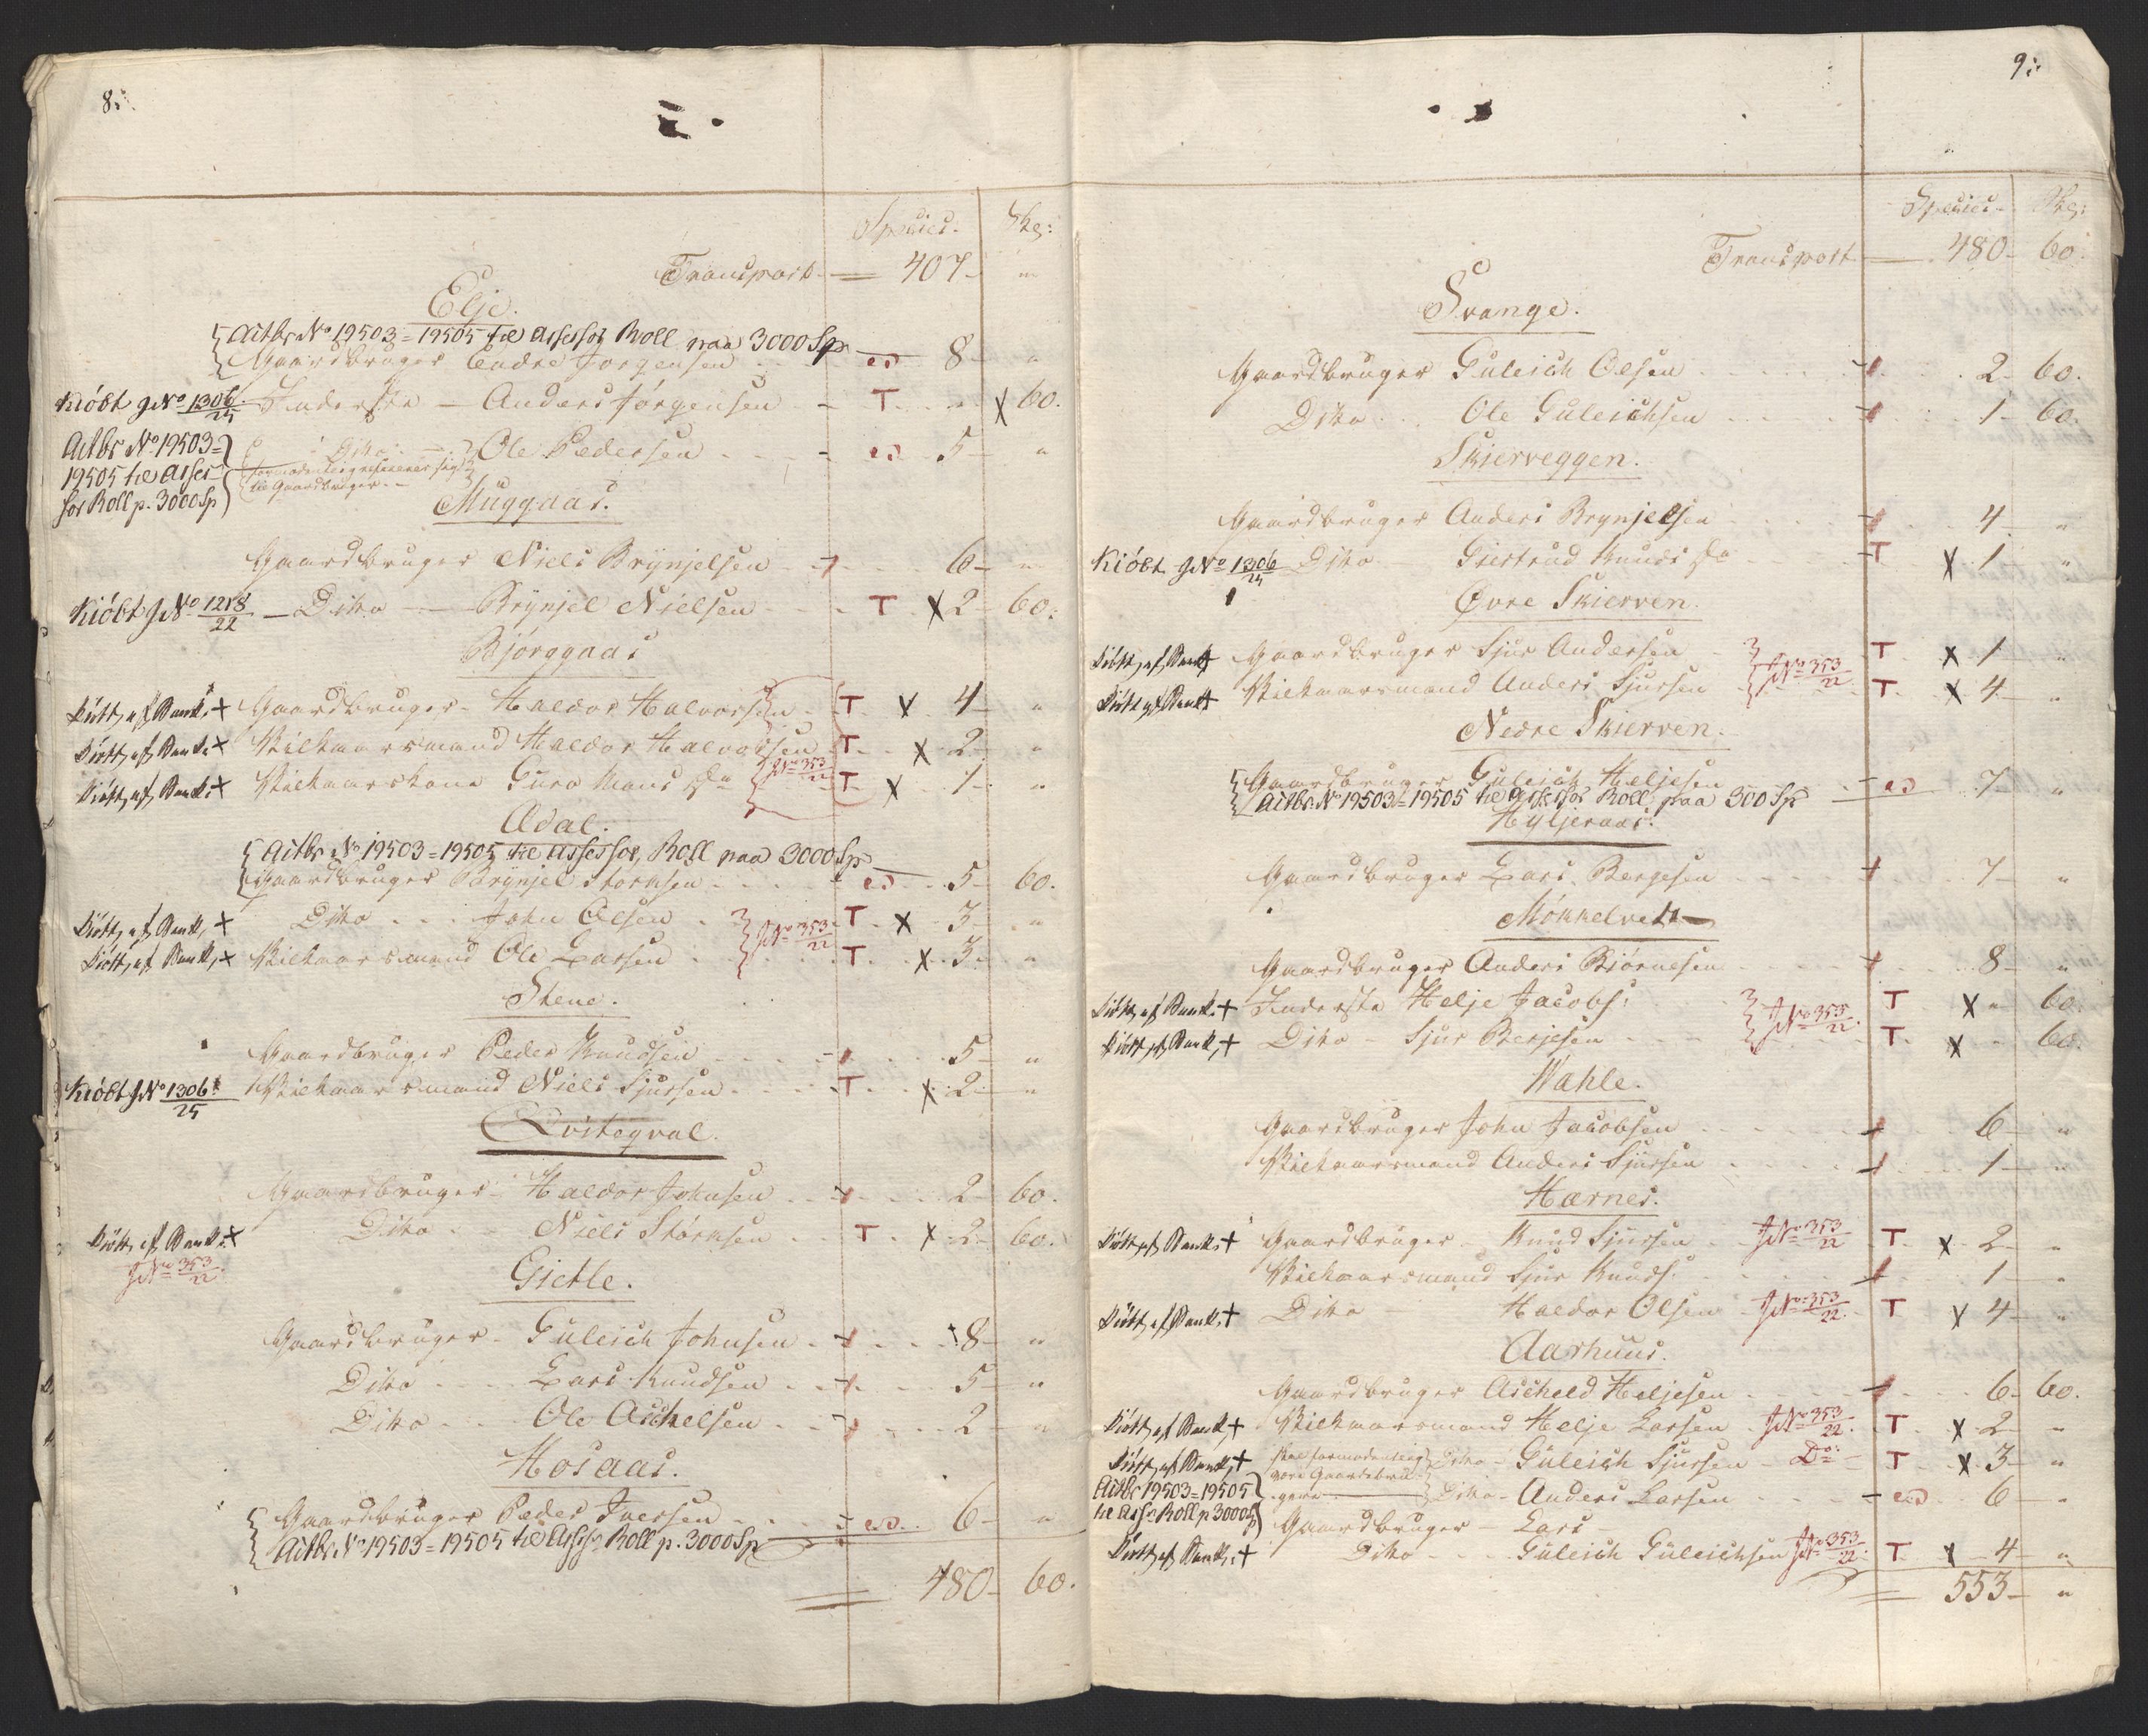 8.
Species. Skg:
Transport — 407 — "
Elje.
Actbr No 19503 = 19505 til Assessor Roll paa 3000 Sp
Gaardbruger Endre Jørgensen — 8 — "
Kiøbt J No 1306/25 Inderste — Anders Jørgensen — T — " X 60.
Actbr No 19503 = Dito — Ole Pedersen — 5 — "
19505 til Asses-
sor Roll p. 3000 Sp til Gaardbruger
Muggaas.
Gaardbruger Niels Brynjelsen — 6 — "
Kiøbt J No 1218/22 — Dito — Brynjel Nielsen — T X 2 — 60.
Bjørggaas
Kiøbt af Bank. + Gaardbruger — Haldor Halvorsen T X 4 — "
Kiøbt af Bank. + Vilkaarsmand Haldor Halvorsen T X 2 — "
Kiøbt af Bank. + Vilkaarskone Guro Mons Da J No 353/22 T X 1 — "
Adal.
Actbr No 19503 = 19505 til Assessor Roll paa 3000 Sp
Gaardbruger Brynjel Storksen — 5 — 60.
Kiøbt af Bank. + Dito — John Olsen J No 353/22 T X 3 — "
Kiøbt af Bank. + Vilkaarsmand Ole Larsen T X 3 — "
Stene.
Gaardbruger Peder Knudsen — 5 — "
Kiøbt J No 1306/25 Vilkaarsmand Niels Sjursen T X 2 — "
Qviteqval.
Gaardbruger — Haldor Johnsen — 2 — 60.
Kiøbt af Bank. + Dito — Niels Størksen T X 2 — 60.
J No 353/22
Gietle.
Gaardbruger — Guleich Johnsen — 8 — "
Dito — Lars Knudsen — 5 — "
Dito — Ole Aschelsen — 2 — "
Hosaas.
Gaardbruger Peder Iversen — 6 — "
Actbr No 19503 = 19505 til Assessor Roll p. 3000 Sp
480 — 60.
9.
Species — Skg:
Transport — 480 — 60.
Svange.
Gaardbruger Guleich Olsen — 2 — 60.
Dito — Ole Guleichsen — 1 — 60.
Skierveggen.
Gaardbruger Anders Brynjelsen — 4 — "
Kiøbt J No 1306/25 Dito — Giertrud Knuds Da T X 1 — "
Øvre Skierven.
Kiøbt af Bank + Gaardbruger Sjur Andersen J No 353/22 T X 1 — "
Kiøbt af Bank + Vilkaarsmand Anders Sjursen T X 4 — "
Nedre Skierven.
Gaardbruger Guleich Heljesen — 7 — "
Actbr No 19503 = 19505 til Assessor Roll paa 300 Sp
Hyljeraas.
Gaardbruger Lars Bergesen — 7 — "
Møkkelvett
Gaardbruger Anders Biørnesen — 8 — "
Kiøbt af Bank. + Inderste Helje Jacobs: J No 353/22 T X " 60.
Kiøbt af Bank. + Dito — Sjur Berjesen T X " 60.
Wahle.
Gaardbruger John Jacobsen — 6 — "
Vilkaarsmand Anders Sjursen — 1 — "
Hærnes.
Kiøbt af Bank. + Gaardbruger — Knud Sjursen J No 353/22 T X 2 — "
Vilkaarsmand Sjur Knuds: — 1 — "
Kiøbt af Bank. + Dito — Haldor Olsen J No 353/22 T X 4 — "
Aarhuus.
Gaardbruger Ascheld Heljesen — 6 — 60.
Kiøbt af Bank. + Vilkaarsmand Helje Larsen J No 353/22 T X 2 — "
Kiøbt af Bank. + skal formodentlig Dito — Guleich Sjursen — Do T X 3 — "
Actbr 19503 = 19505 være Gaardbrugere — Dito — Anders Larsen — 6 — "
til Asss. Roll p 3000 Sp Gaardbruger — Lars —
Kiøbt af Bank. + Dito — Guleich Guleichsen J No 353/22 T X 4 — "
553 — "